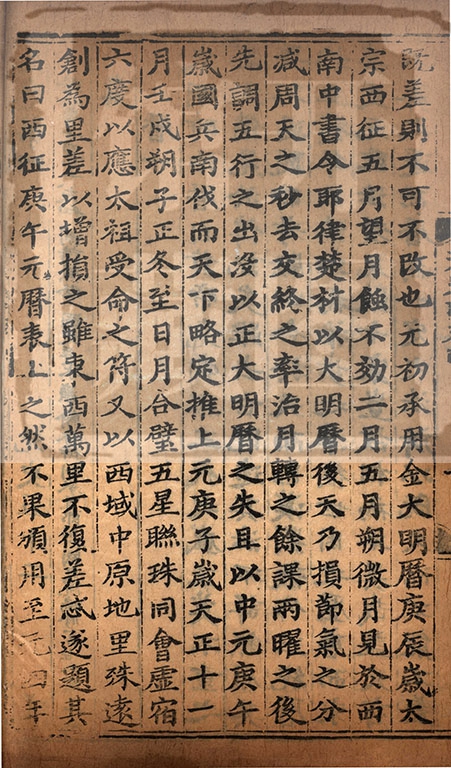 既差則不可不改也元初承用金大明曆庚辰歲太
宗西征五月望月蝕不効二月五月朔微月見於西
南中書令耶律楚材以大明曆後天乃損節氣之分
减周天之秒去交終之率治月轉之餘課兩曜之後
先調五行之出沒以正大明曆之失且以中元庚午
歲國兵南伐而天下略定推上元庚子歲天正十一
月壬戌朔子正冬至日月合璧五星聯珠同會虛宿
六度以應太祖受命之符又以西域中原地里殊遠
創為里差以增損之雖東西萬里不復差忒遂題其
名曰西征庚午元曆表上之然不果頒用至元四年